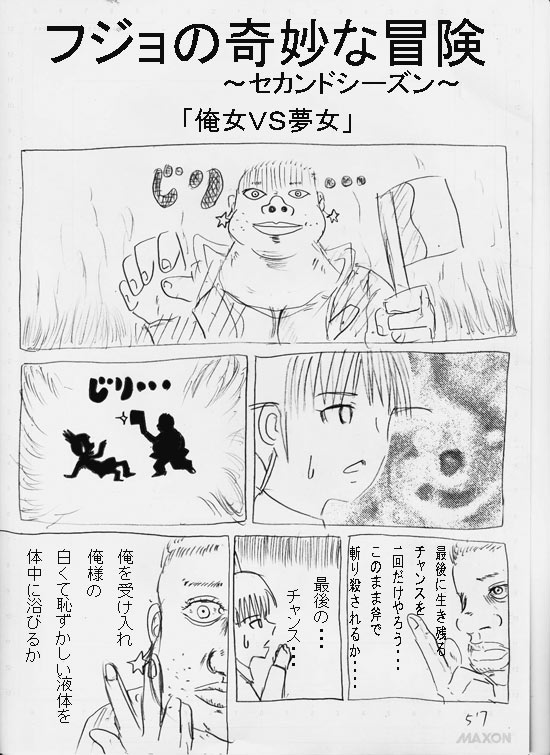 フジョの奇妙な冒険
～セカンドシーズン～
「俺女VS夢女」
じり・・・
じり・・・
最後に生き残る
チャンスを
一回だけやろう・・・
このまま斧で
斬り殺されるか・・・・
最後の・・・
チャンス・・・
俺を受け入れ
俺様の
白くて恥ずかしい液体を
体中に浴びるか
57
MAXON